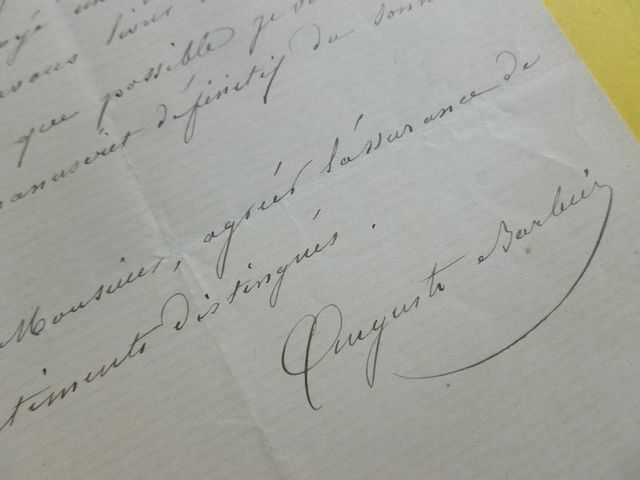 vous livrer
que possible je
manuscrit définitif du sonn
Monsieur, agréer l'assurance de
timents distingués.
Auguste Barbier